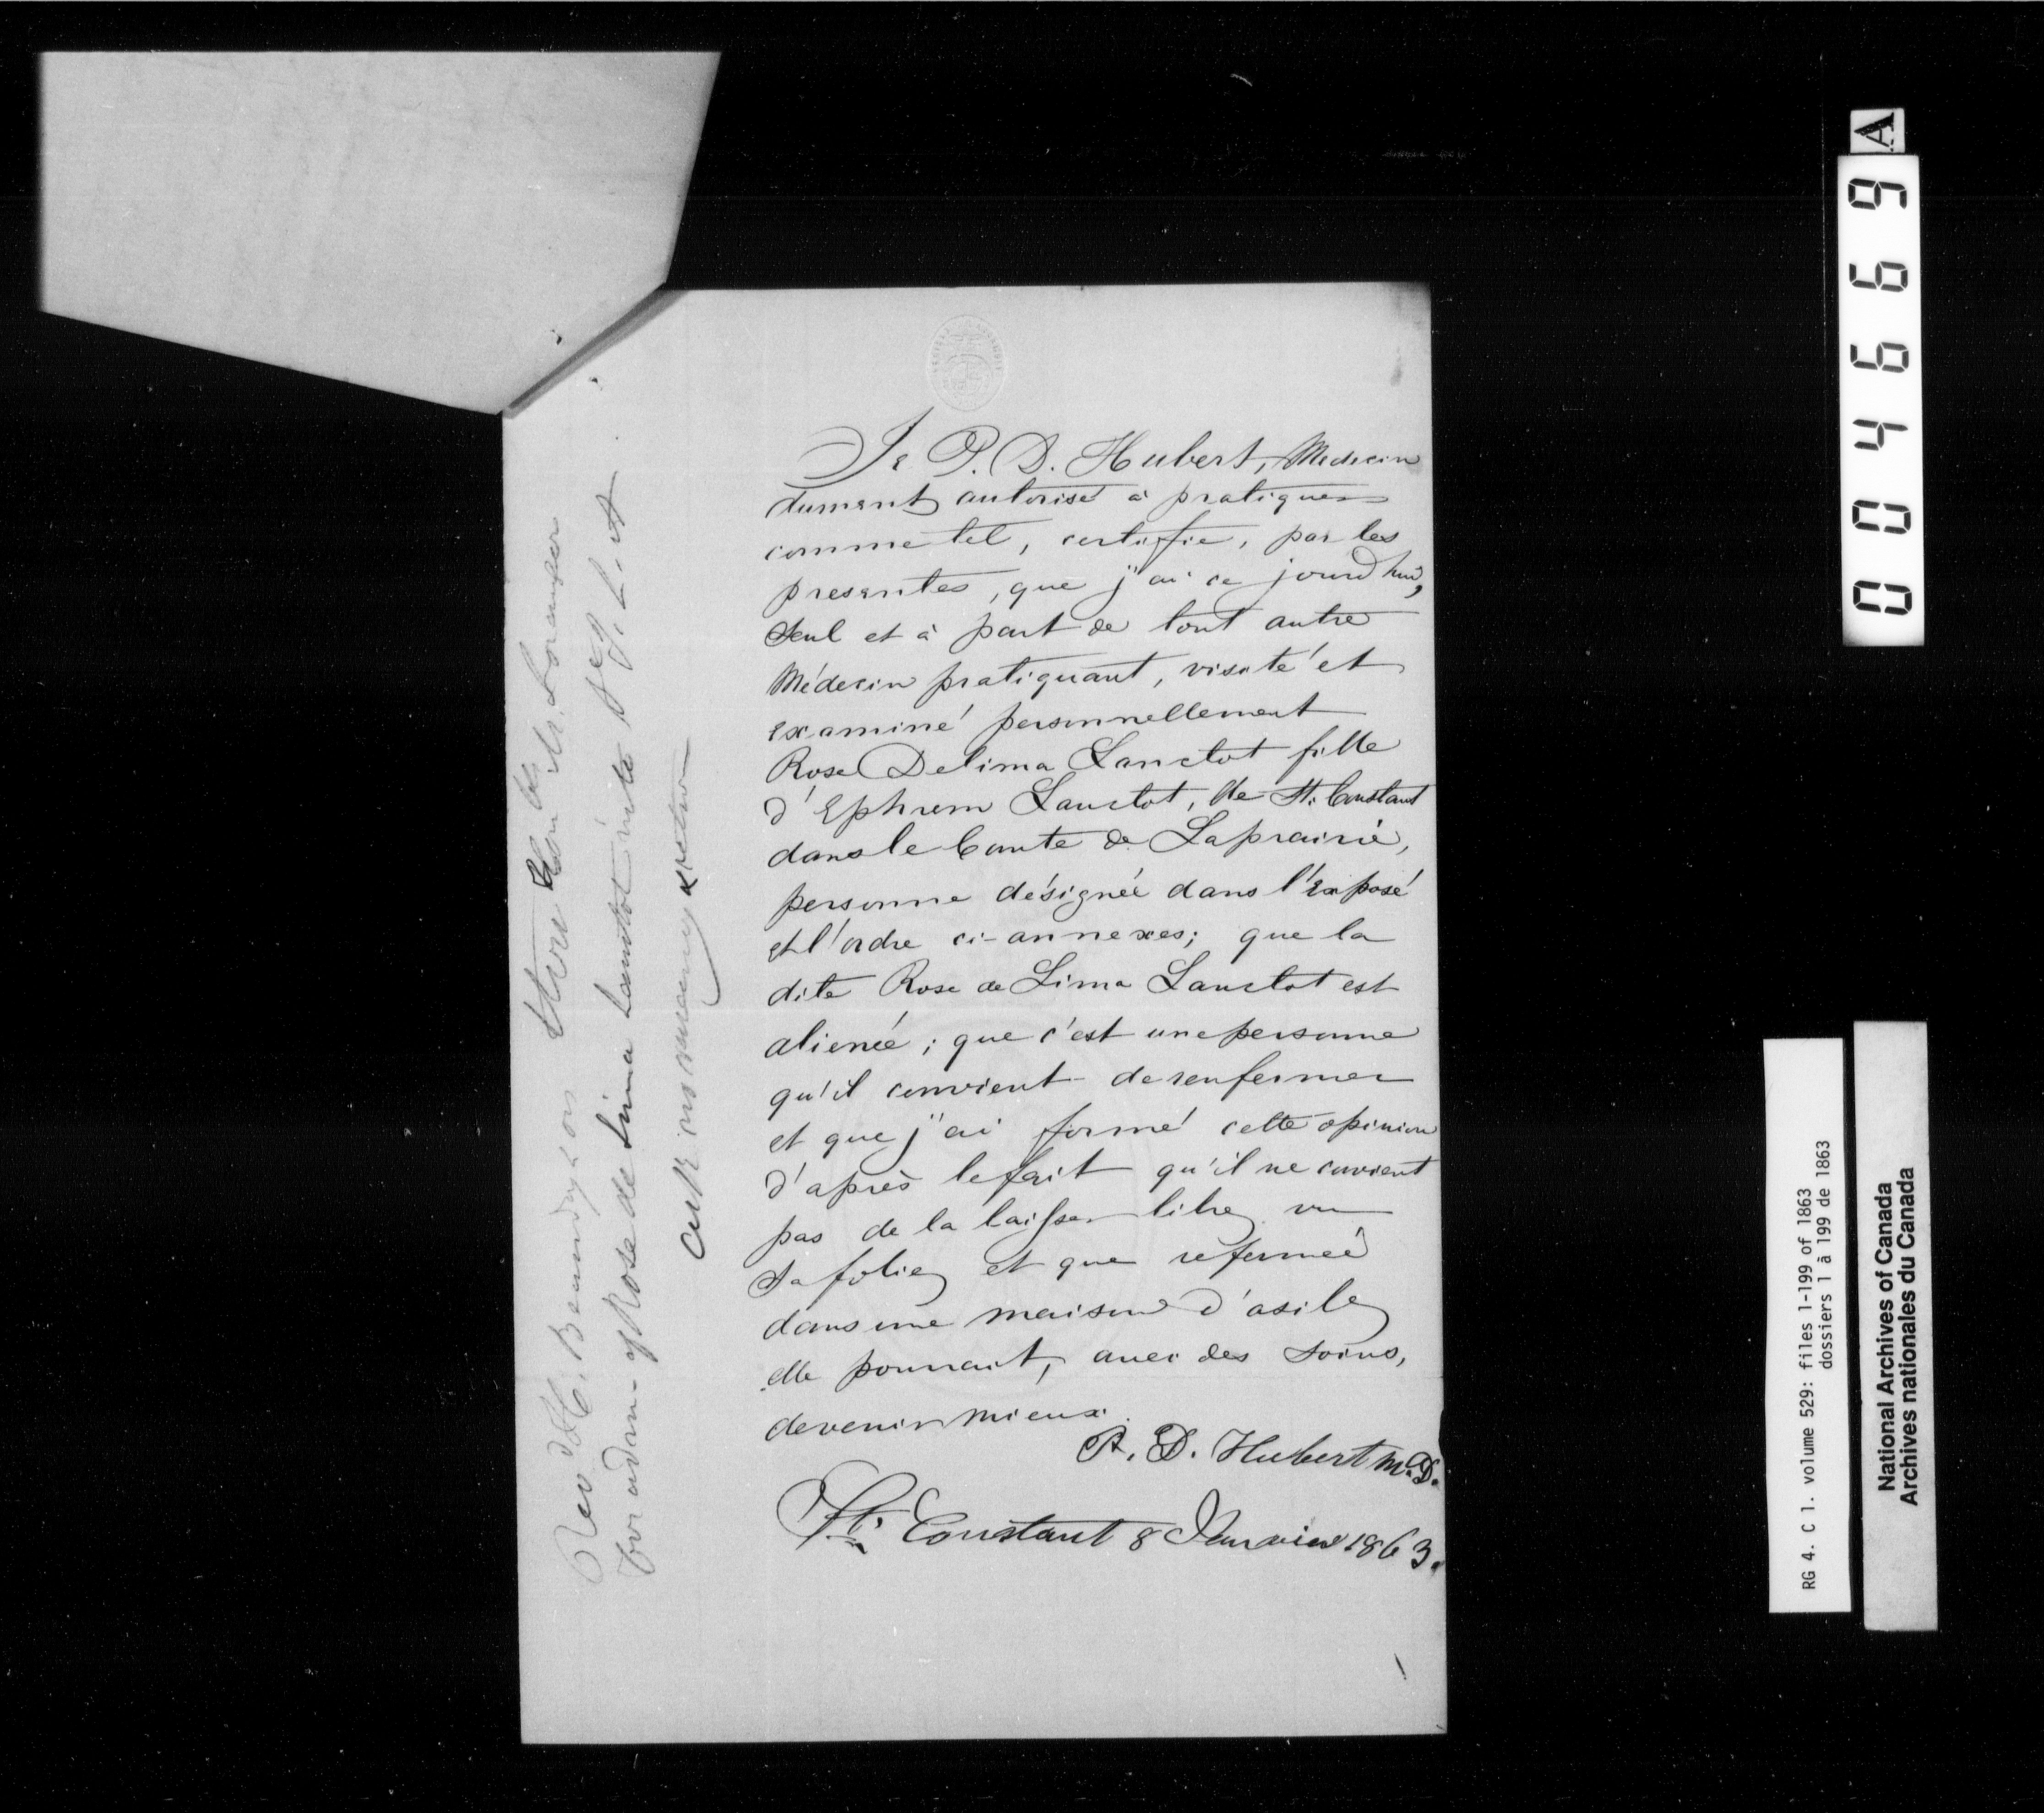 Je P. D. Hubert, Medecin
dument autorisé à pratiquer
comme tel, certifie, par les
presentes, que j'ai ce jourd'hui,
seul et à part de tout autre
Médecin pratiquant, visité et
examiné personnellement
Rose Delima Lanctot fille
d'Ephrem Lanctot, de St. Constant
dans le Comte de Laprairie,
personne désignée dans l'exposé
et l'ordre ci-annexes; que la
dite Rose de Lima Lanctot est
alienée; que c'est une personne
qu'il convient de renfermer
et que j'ai formé cette opinion
d'après le fait qu'il ne convient
pas de la laisser libre vu
sa folie et que refermée
dans une maison d'asile
elle pourrait, avec des soins,
devenir mieux.
P. D. Hubert M.D.
St. Constant 8 Janvier 1863.
Rev d
for adm of Rose de Lima Lanctot into
A
004669
RG 4. C 1. volume 529: files 1-199 of 1863
dossiers 1 à 199 de 1863
National Archives of Canada
Archives nationales du Canada